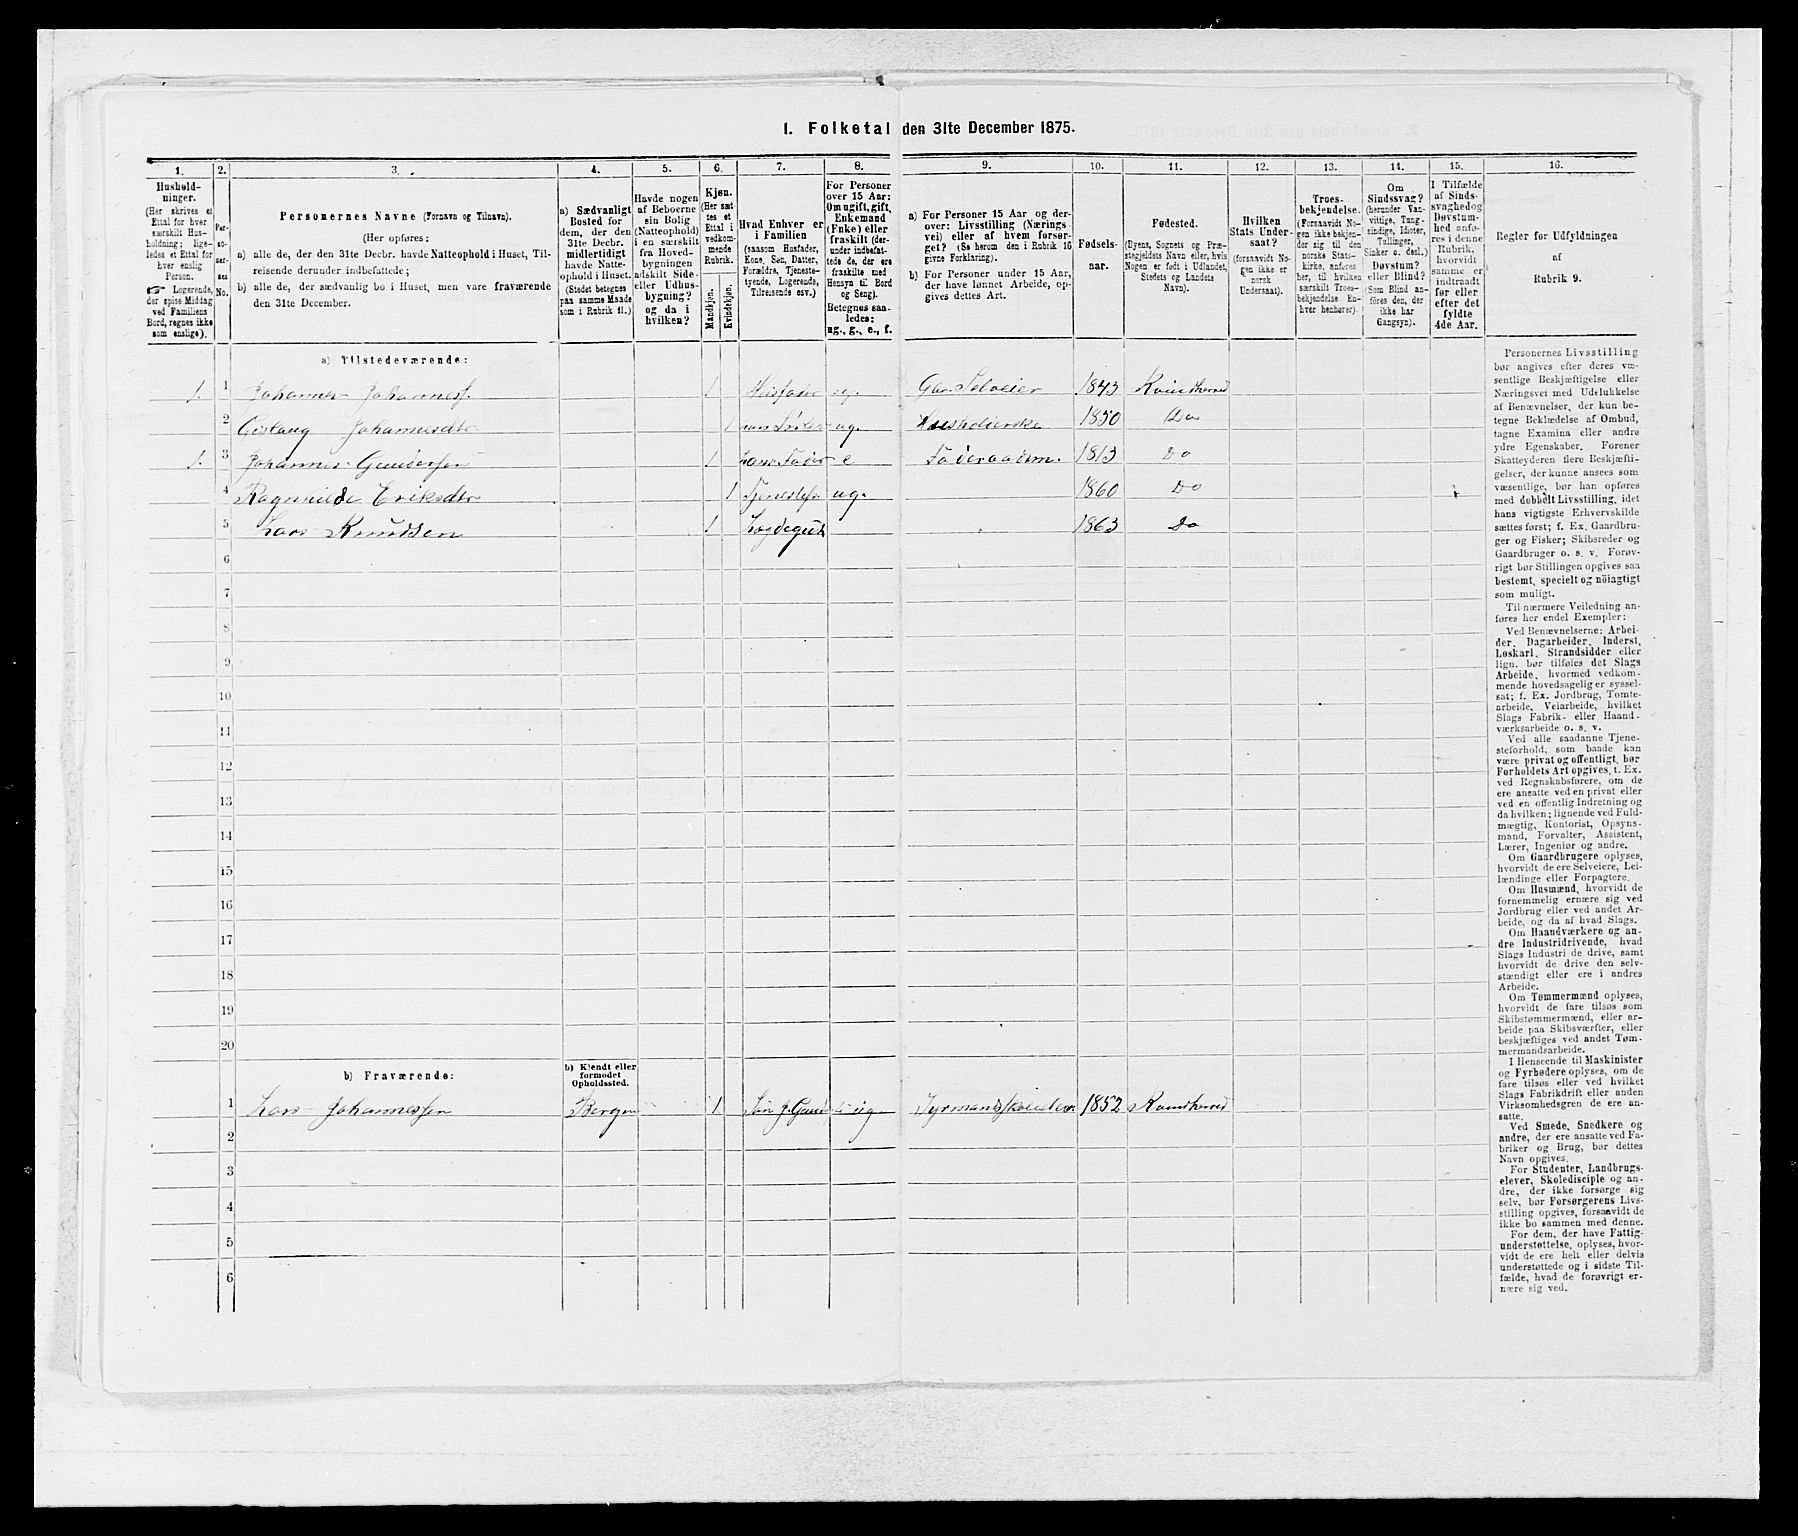 I. Folketal den 31te December 1875.
1. 2. 3. 4. 5. 6. 7. 8. 9. 10. 11. 12. 13. 14. 15. 16.
Hushold-
ninger.
(Her skrives et
Ettal for hver
særskilt Hus-
holdning; lige-
ledes et Ettal for
hver enslig
Person.
☞ Logerende,
der spise Middag
ved Familiens
Bord, regnes ikke
som enslige).
Per-
so-
ner-
nes
No.
Personernes Navne (Fornavn og Tilnavn).
(Her opføres:
a) alle de, der den 31te Decbr. havde Natteophold i Huset, Til-
reisende derunder indbefattede;
b) alle de, der sædvanlig bo i Huset, men vare fraværende
den 31te December.
a) Sædvanligt
Bosted for
dem, der den
31te Decbr.
midlertidigt
havde Natte-
ophold i Huset.
(Stedet betegnes
paa samme Maade
som i Rubrik 11.)
Havde nogen
af Beboerne
sin Bolig
(Natteophold)
i en særskilt
fra Hoved-
bygningen
adskilt Side-
eller Udhus-
bygning?
og da i
hvilken?
Kjøn.
(Her sæt-
tes et
Ettal i
vedkom-
mende
Rubrik.
Mandkjøn.
Kvindekjøn.
Hvad Enhver er
i Familien
(saasom Husfader,
Kone, Søn, Datter,
Forældre, Tjeneste-
tyende, Logerende,
Tilreisende osv.)
For Personer
over 15 Aar:
Om ugift, gift,
Enkemand
(Enke) eller
fraskilt (der-
under indbefat-
tede de, der ere
fraskilte med
Hensyn til Bord
og Seng).
Betegnes saa-
ledes:
ug., g., e., f.
a) For Personer 15 Aar og der-
over: Livsstilling (Nærings-
vei) eller af hvem forsør-
get? (Se herom den i Rubrik 16
givne Forklaring).
b) For Personer under 15 Aar,
der have lønnet Arbeide, op-
gives dettes Art.
Fødsels-
aar.
Fødested.
(Byens, Sognets og Præ-
stegjeldets Navn eller, hvis
Nogen er født i Udlandet,
Stedets og Landets
Navn).
Hvilken
Stats Under-
saat?
(forsaavidt No-
gen ikke er
norsk
Undersaat).
Troes-
bekjendelse.
(Forsaavidt No-
gen ikke bekjen-
der sig til den
norske Stats-
kirke, anføres
her, til hvilken
særskilt Troes-
bekjendelse En-
hver henhører).
Om
Sindssvag?
(herunder Van-
vittige, Tung-
sindige, Idioter,
Tullinger,
Sinker o. desl.)
Døvstum?
eller Blind?
(Som Blind an-
føres den, der
ikke har
Gangsyn).
I Tilfælde
af Sinds-
svaghed og
Døvstum-
hed anfø-
res i denne
Rubrik,
hvorvidt
samme er
indtraadt
før eller
efter det
fyldte
4de Aar.
Regler for Udfyldningen
af
Rubrik 9.
a) Tilstedeværende:
1. 1 Johannes Johanness. 1 Husfader ug. Gbr. Selveier 1843 Kvindherred
2 Gislaug Johannesdtr 1 hans Søster ug. Husholderske 1850 Do
1. 3 Johannes Gundersen 1 hans Fader e Føderaadsm. 1813 Do
4 Ragnhilde Eriksdtr 1 Tjenestef. ug. 1860 Do
5 Lars Knudsen 1 Lægdegut 1863 Do
6
7
8
9
10
11
12
13
14
15
16
17
18
19
20
b) Fraværende:
b) Kjendt eller
formodet
Opholdssted.
1 Lars Johannessen Bergen 1 Søn J. Gund ug 1852 Kvindherred
2
3
4
5
6
Personernes Livsstilling
bør angives efter deres væ-
sentlige Beskjæftigelse eller
Næringsvei med Udelukkelse
af Benævnelser, der kun be-
tegne Beklædelse af Ombud,
tagne Examina eller andre
ydre Egenskaber. Forener
Skatteyderen flere Beskjæfti-
gelser, der kunne ansees som
væsentlige, bør han opføres
med dobbelt Livsstilling, idet
hans vigtigste Erhvervskilde
sættes først; f. Ex. Gaardbru-
ger og Fisker; Skibsreder og
Gaardbruger o. s. v. Forøv-
rigt bør Stillingen opgives saa
bestemt, specielt og nøiagtigt
som muligt.
Til nærmere Veiledning an-
føres her endel Exempler:
Ved Benævnelserne: Arbei-
der, Dagarbeider, Inderst,
Løskarl, Strandsidder eller
lign. bør tilføies det Slags
Arbeide, hvormed vedkom-
mende hovedsagelig er syssel-
sat; f. Ex. Jordbrug, Tomte-
arbeide, Veiarbeide, hvilket
Slags Fabrik- eller Haand-
værksarbeide o. s. v.
Ved alle saadanne Tjene-
steforhold, som baade kan
være privat og offentligt, bør
Forholdets Art opgives, t. Ex.
ved Regnskabsførere, om de
ere ansatte ved en privat eller
ved en offentlig Indretning og
da hvilken; lignende ved Fuld-
mægtig, Kontorist, Opsyns-
mand, Forvalter, Assistent,
Lærer, Ingeniør og andre.
Om Gaardbrugere oplyses,
hvorvidt de ere Selveiere, Lei-
lændinge eller Forpagtere.
Om Husmænd, hvorvidt de
fornemmelig ernære sig ved
Jordbrug eller ved andet Ar-
beide, og da af hvad Slags.
Om Haandværkere og an-
dre Industridrivende, hvad
Slags Industri de drive, samt
hvorvidt de drive den selv-
stændigt eller ere i andres
Arbeide.
Om Tømmermænd oplyses,
hvorvidt de fare tilsøs som
Skibstømmermænd, eller ar-
beide paa Skibsværfter, eller
beskjæftiges ved andet Tøm-
mermandsarbeide.
I Henseende til Maskinister
og Fyrbødere oplyses, om de
fare tilsøs eller ved hvilket
Slags Fabrikdrift eller anden
Virksomhedsgren de ere an-
satte.
Ved Smede, Snedkere og
andre, der ere ansatte ved Fa-
briker og Brug, bør dettes
Navn opgives.
For Studenter, Landbrugs-
elever, Skoledisciple og an-
dre, der ikke forsørge sig
selv, bør Forsørgerens Livs-
stilling opgives, forsaavidt de
ikke bo sammen med denne.
For dem, der have Fattig-
understøttelse, oplyses, hvor-
vidt de ere helt eller delvis
understøttede og i sidste Til-
fælde, hvad de forøvrigt er-
nære sig ved.